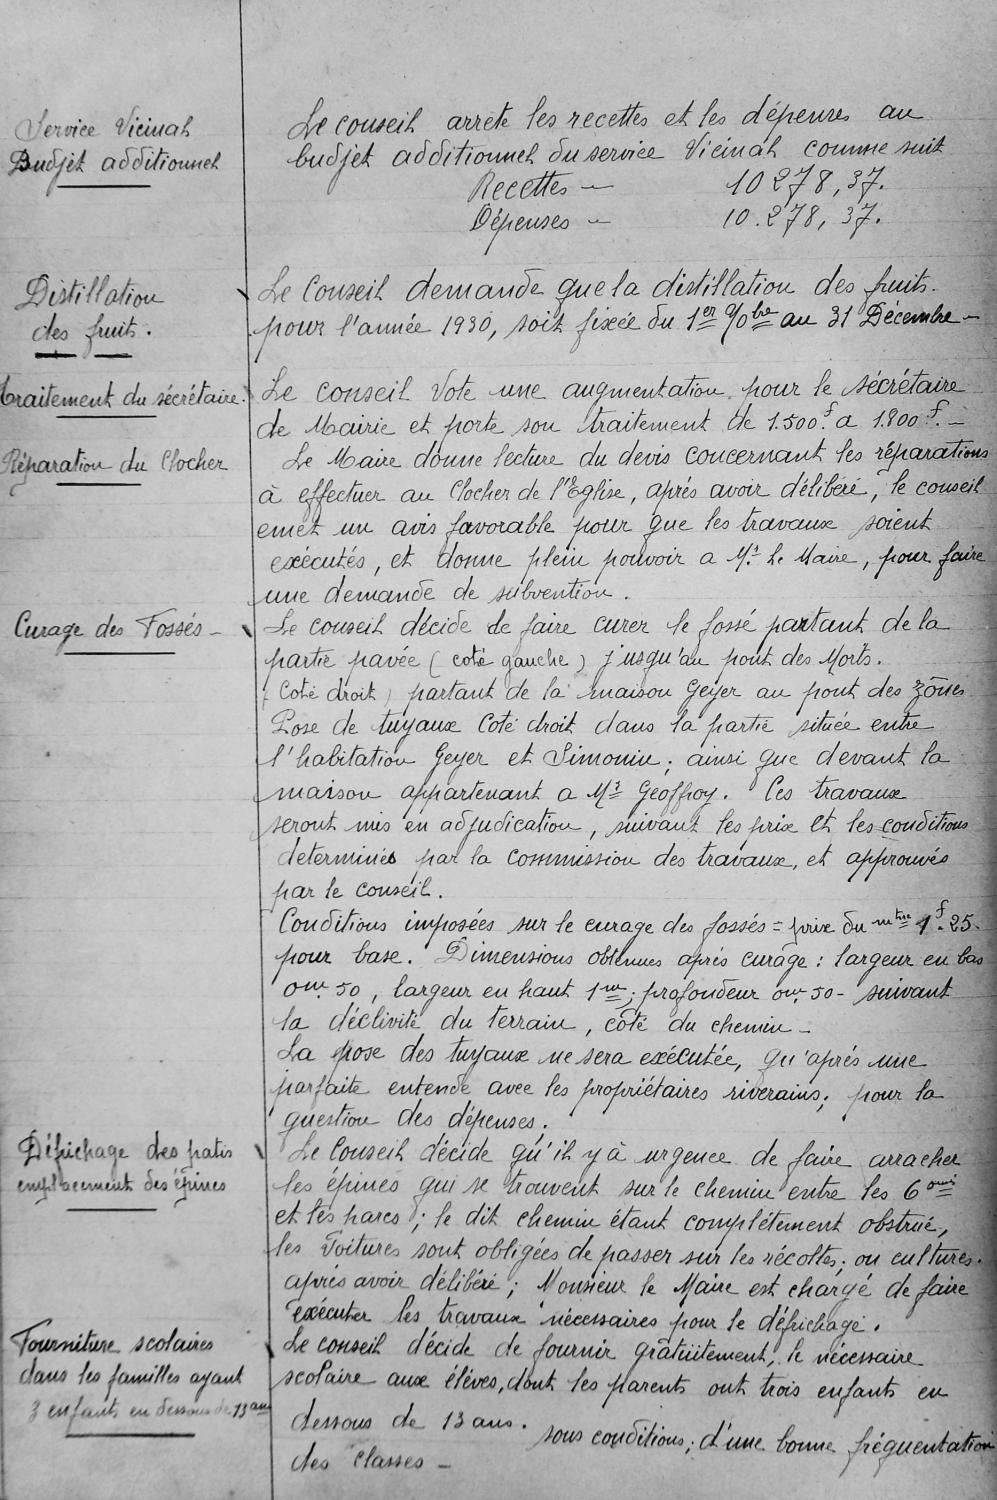 Service Vicinal
Budjet additionnel
Le conseil arrète les recettes et les dépenses au
budjet additionnel du service Vicinal comme suit
Recettes — 10278,37.
Dépenses — 10.278,37.
Distillation
des fruits.
Le Conseil demande que la distillation des fruits.
pour l'année 1930, soit fixée du 1er 9/obre au 31 Décembre —
Traitement du sécrétaire.
Le conseil Vote une augmentation pour le sécrétaire
de Mairie et porte son traitement de 1.500.f a 1.800f. —
Réparation du Clocher
Le Maire donne lecture du devis concernant les réparations
à effectuer au Clocher de l'Eglise, aprés avoir délibéré, le conseil
emet un avis favorable pour que les travaux soient
exécutés, et donne plein pouvoir a Mr. Le Maire, pour faire
une demande de subvention.
Curage des Fossés —
Le conseil décide de faire curer le fossé partant de la
partie pavée (coté gauche) jusqu'au pont des Morts.
(Coté droit) partant de la maison Geyer au pont des zônes
Pose de tuyaux Coté droit dans la partie située entre
l'habitation Geyer et Simonin; ainsi que devant la
maison appartenant a Mr Geoffroy. Ces travaux
seront mis en adjudication, suivant les prix et les conditions
determinés par la commission des travaux, et approuvés
par le conseil.
Conditions imposées sur le curage des fossés = prix du mtre 1f.25.
pour base. Dimensions obtenues aprés curage: largeur en bas
om.50, largeur en haut 1m; profondeur om.50 - suivant
la déclivité du terrain, côté du chemin —
La pose des tuyaux ne sera exécutée, qu'aprés une
parfaite entende avec les propriétaires riverains; pour la
question des dépenses.
Défrichage des patis
emplacement des épines
Le Conseil décide qu'il y à urgence de faire arracher
les épines qui se trouvent sur le chemin entre les 6
et les parcs; le dit chemin étant complétement obstrué,
les Voitures sont obligées de passer sur les récoltes; ou cultures.
aprés avoir délibéré; Monsieur le Maire est chargé de faire
exécuter les travaux nécessaires pour le défrichage.
Fourniture scolaires
dans les familles ayant
3 enfants en dessous de 13 ans
Le conseil décide de fournir gratuitement, le nécessaire
scolaire aux élèves, dont les parents ont trois enfants en
dessous de 13 ans. sous conditions; d'une bonne fréquentation
des classes —